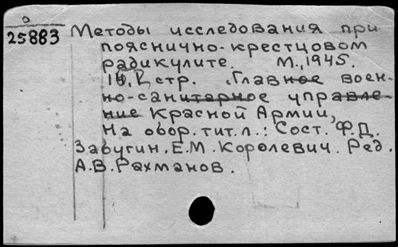 25883
Методы исследования при
пояснично-крестцовом
радикулите. М., 1945.
стр. Главное воен-
но-санитарное управле-
ние Красной Армии,
На обор. тит. л.: Сост. Ф.Д.
Забугин, Е.М. Королевич. Ред.
А.В. Рахманов.